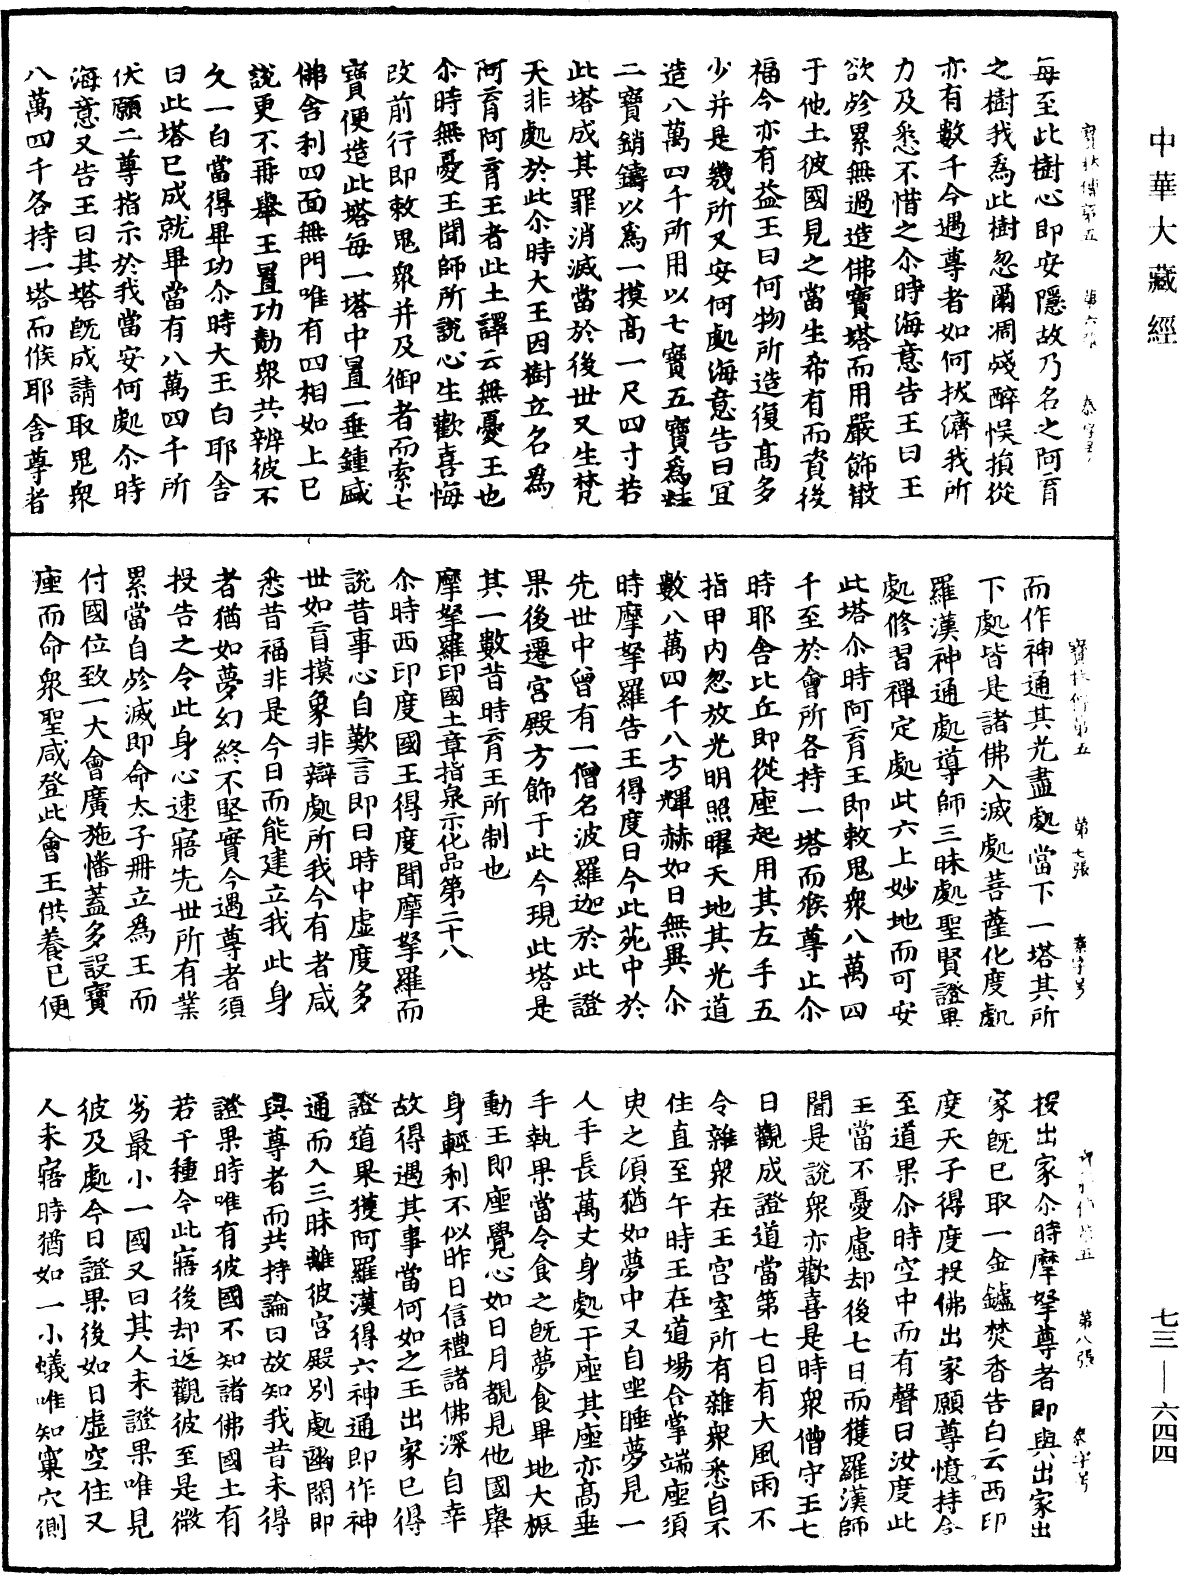 中華大藏經
每至此樹心即安隱故乃名之阿育
之樹我為此樹忽爾凋殘醉悮損從
亦有數千今遇尊者如何拔濟我所
力及悉不惜之尒時海意告王曰王
欲殄累無過造佛寶塔而用嚴飾散
于他土彼國見之當生希有而資後
福今亦有益王曰何物所造復高多
少并是幾所又安何處海意告曰冝
造八萬四千所用以七寶五寶為精
二寶銷鑄以為一摸高一尺四寸若
此塔成其罪消滅當於後世又生梵
天非處於此尒時大王因樹立名為
阿育阿育王者此土譯云無憂王也
尒時無憂王聞師所說心生歡喜悔
改前行即敕鬼衆并及御者而索七
寶便造此塔每一塔中置一垂鍾盛
佛舍利四面無門唯有四相如上已
說更不再舉王置功勳衆共辨彼不
久一白當得畢功尒時大王白耶舍
曰此塔已成就畢當有八萬四千所
伏願二尊指示於我當安何處尒時
海意又告王曰其塔旣成請取鬼衆
八萬四千各持一塔而候耶舍尊者
第七張
而作神通其光盡處當下一塔其所
下處皆是諸佛入滅處菩薩化度處
羅漢神通處導師三昧處聖賢證果
處修習禪定處此六上妙地而可安
此塔尒時阿育王即敕鬼衆八萬四
千至於會所各持一塔而候尊止尒
時耶舍比丘即從座起用其左手五
指甲内忽放光明照曜天地其光道
數八萬四千八方輝赫如日無異尒
時摩拏羅告王得度曰今此苑中於
先世中曾有一僧名波羅迦於此證
果後遷宮殿方飾于此今現此塔是
其一數昔時育王所制也
摩拏羅印國土章指泉示化品第二十八
尒時西印度國王得度聞摩拏羅而
說昔事心自歎言即日時中虛度多
世如盲摸象非辯處所我今有者咸
悉昔福非是今日而能建立我此身
者猶如夢幻終不堅實今遇尊者須
投告之令此身心速寤先世所有業
累當自殄滅即命太子冊立為王而
付國位致一大會廣施幡蓋多設寶
座而命衆聖咸登此會王供養已便
第八張
投出家尒時摩拏尊者即與出家出
家旣已取一金鑪焚香告白云西印
度天子得度投佛出家願尊憶持令
至道果尒時空中而有聲曰汝度此
王當不憂慮却後七日而獲羅漢師
聞是說衆亦歡喜是時衆僧守王七
日觀成證道當第七日有大風雨不
令雜衆在王宮室所有雜衆悉自不
住直至午時王在道場合掌端座須
臾之頃猶如夢中又自坐睡夢見一
人手長萬丈身處于座其座亦高垂
手執果當令食之旣夢食畢地大振
動王即座覺心如日月覩見他國舉
身輕利不似昨日信禮諸佛深自幸
故得遇其事當何如之王出家已得
證道果獲阿羅漢得六神通即作神
通而入三昧離彼宮殿別處幽閑即
與尊者而共持論曰故知我昔未得
證果時唯有彼國不知諸佛國土有
若干種今此寤後却返觀彼至是微
劣最小一國又曰其人未證果唯見
彼及處今日證果後如日虛空住又
人未寤時猶如一小蟻唯知窠穴側
七三—六四四